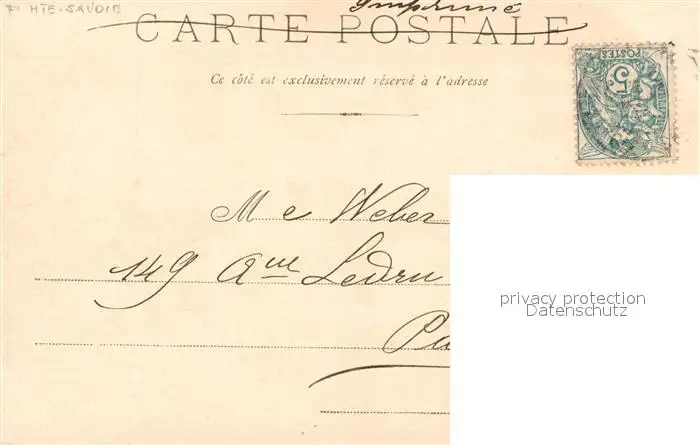 7º HTE-SAVOIE
Imprimé
CARTE POSTALE
Ce côté est exclusivement réservé à l'adresse
POSTES
5
Me Weber
149 Aue Ledru
privacy protection
Datenschutz